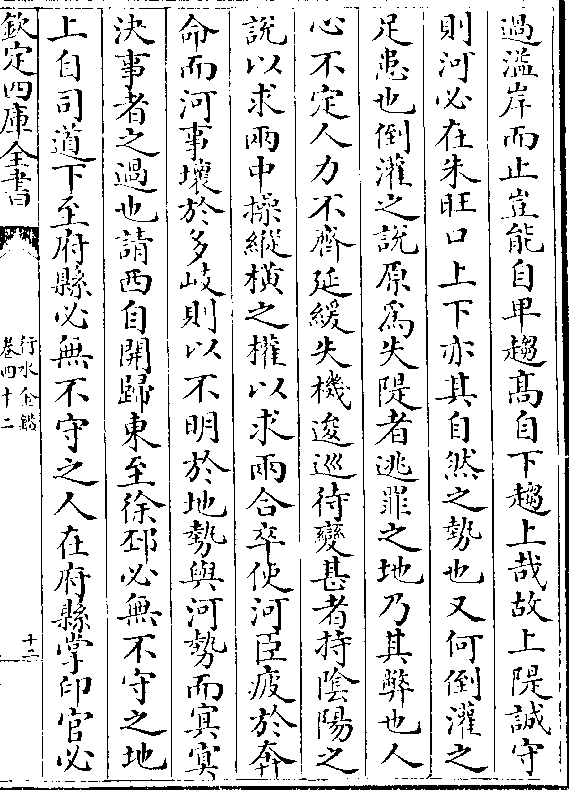 過濫岸而止豈能自卑趨髙自下趨上哉故上隄誠守
則河必在朱旺口上下亦其自然之勢也又何倒灌之
足患也倒灌之說原爲失隄者逃罪之地乃其弊也人
心不定人力不齊延緩失機逡巡待變甚者持陰陽之
說以求兩中操縱橫之權以求兩合卒使河臣疲於奔
命而河事壞於多岐則以不明於地勢與河勢而寅寅
決事者之過也請西自開歸東至徐邳必無不守之地
上自司道下至府縣必無不守之人在府縣掌印官必
欽定四庫全書
行水金鑑
卷四十二
十二